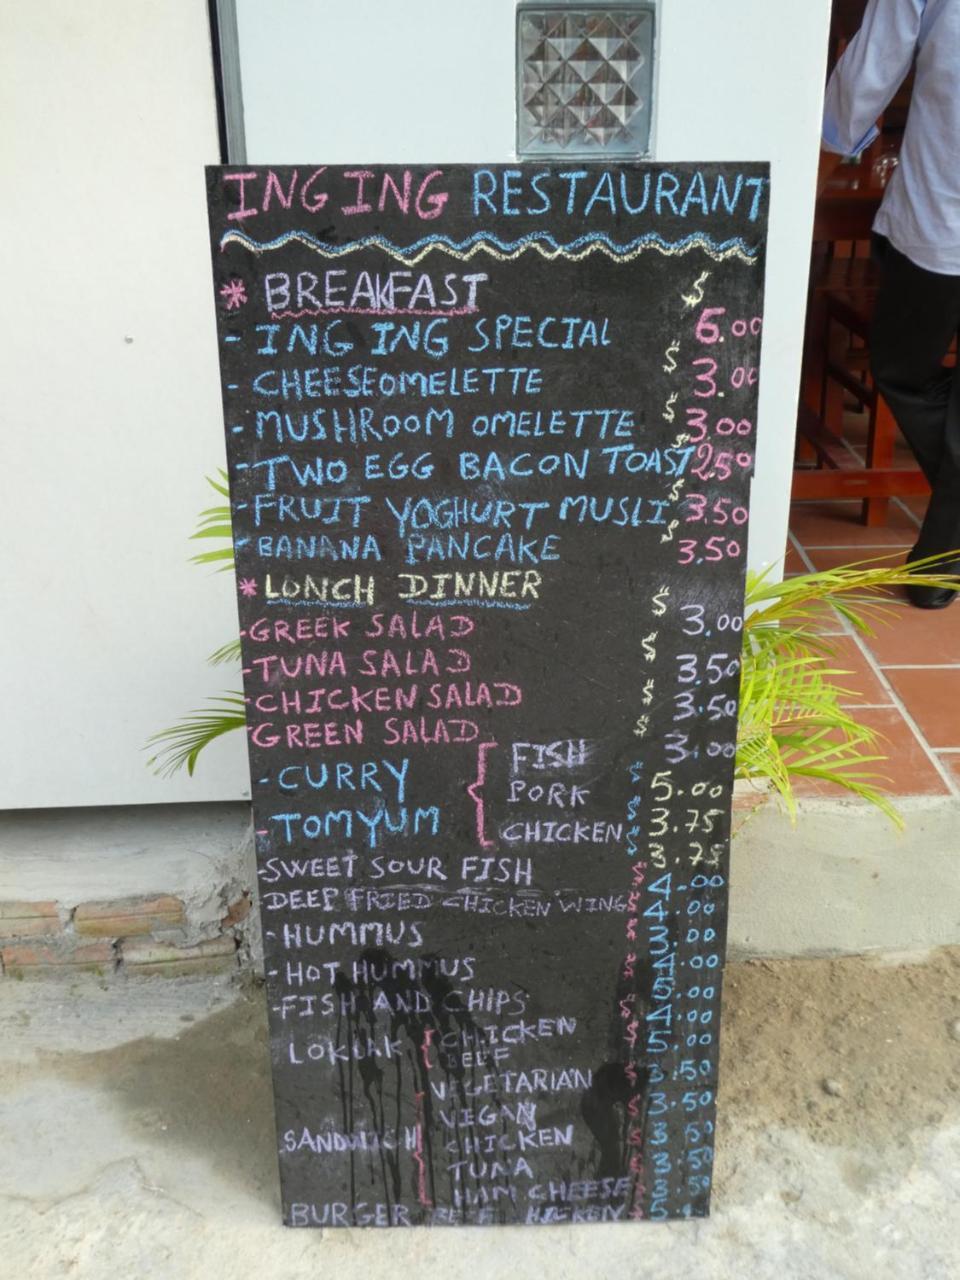 ING ING RESTAURANT
* BREAKFAST
- ING ING SPECIAL $ 6.00
- CHEESEOMELETTE $ 3.00
- MUSHROOM OMELETTE $ 3.00
- TWO EGG BACON TOAST $ 2.50
- FRUIT YOGHURT MUSLI $ 3.50
- BANANA PANCAKE $ 3.50
* LUNCH DINNER
- GREEK SALAD $ 3.00
- TUNA SALAD $ 3.50
- CHICKEN SALAD $ 3.50
- GREEN SALAD $ 3.00
- CURRY { FISH $ 5.00
PORK $ 3.75
- TOMYUM CHICKEN $ 3.75
- SWEET SOUR FISH $ 4.00
DEEP FRIED CHICKEN WING $ 4.00
- HUMMUS $ 3.00
- HOT HUMMUS $ 4.00
- FISH AND CHIPS $ 5.00
LOKLAK { CHICKEN $ 4.00
BEEF $ 5.00
VEGETARIAN $ 3.50
VIGAN $ 3.50
SANDWICH { CHICKEN $ 3.50
TUNA $ 3.50
HAM CHEESE $ 3.50
BURGER BEEF CHICKEN $